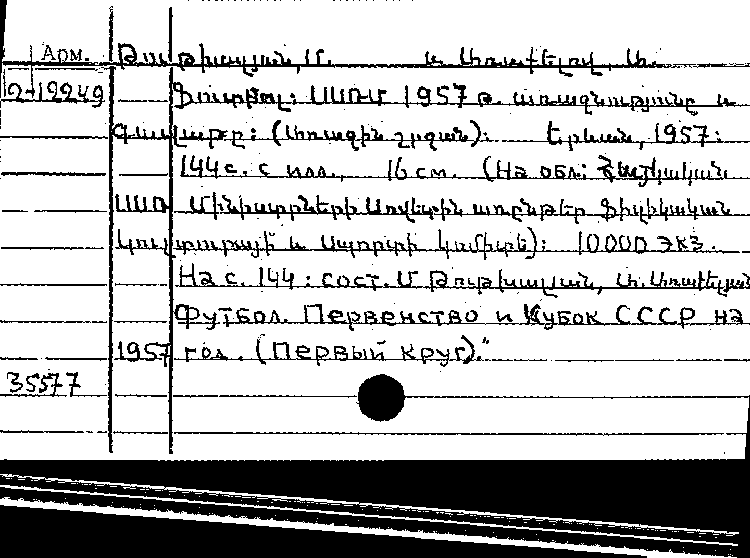 Арм. Թութխալյան, Մ. և Առաքելով, Ա.
2-12249 Ֆուտբոլ: ՍՍՌՄ 1957 թ. առաջնությունը և
գավաթը: (Առաջին շրջան): Երևան, 1957:
144 с. с илл., 16 см. (На обл: Հայկական
ՍՍՌ Մինիստրների Սովետին առընթեր Ֆիզիկական
կուլտուրայի և Սպորտի կոմիտե): 10000 экз.
На с. 144: сост. Մ. Թութխալյան, Ա. Առաքելյան
Футбол. Первенство и Кубок СССР на
1957 год. (Первый круг)."
35577